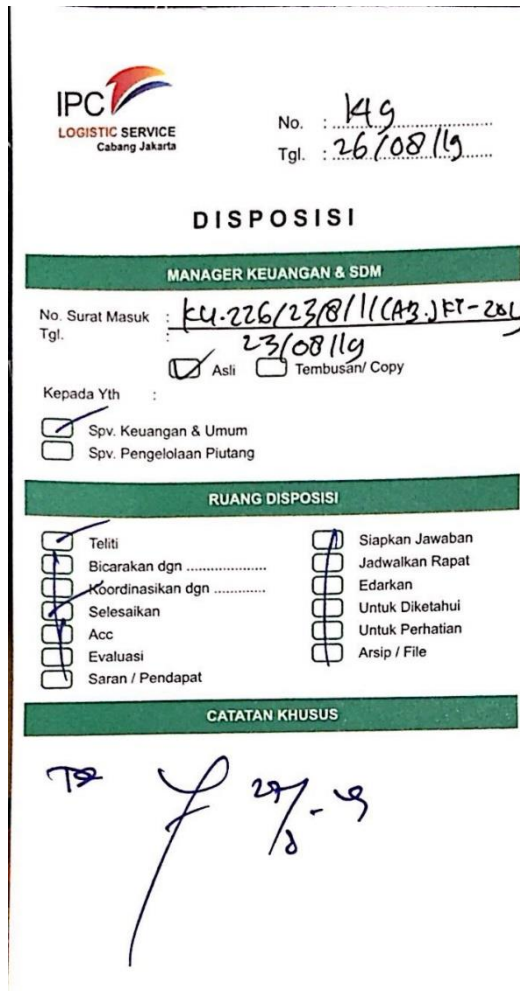 IPC
LOGISTIC SERVICE
Cabang Jakarta
No. : 149
Tgl. : 26/08/19
DISPOSISI
MANAGER KEUANGAN & SDM
No. Surat Masuk :
Tgl. : 23/08/19
Asli Tembusan/ Copy
Kepada Yth :
Spv. Keuangan & Umum
Spv. Pengelolaan Piutang
RUANG DISPOSISI
Teliti
Bicarakan dgn ....................
Koordinasikan dgn .............
Selesaikan
Acc
Evaluasi
Saran / Pendapat
Siapkan Jawaban
Jadwalkan Rapat
Edarkan
Untuk Diketahui
Untuk Perhatian
Arsip / File
CATATAN KHUSUS